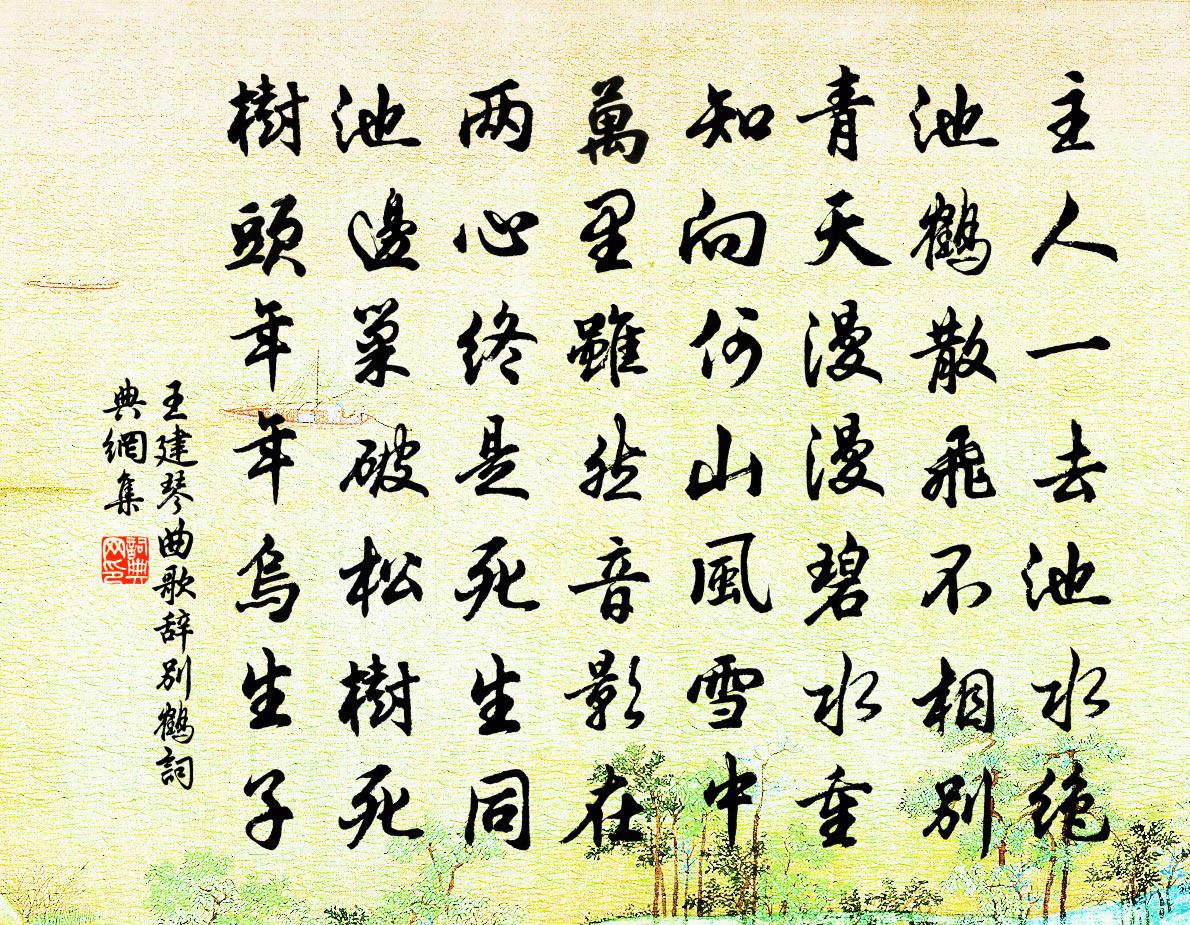 主人一去池水绝
池鶴散飛不相別
青天漫漫碧水重
知向何山風雪中
萬里雖然音影在
两心終是死生同
池邊巢破松樹死
樹頭年年烏生子
王建琴曲歌辞别鶴詞
典網集
詞典网印